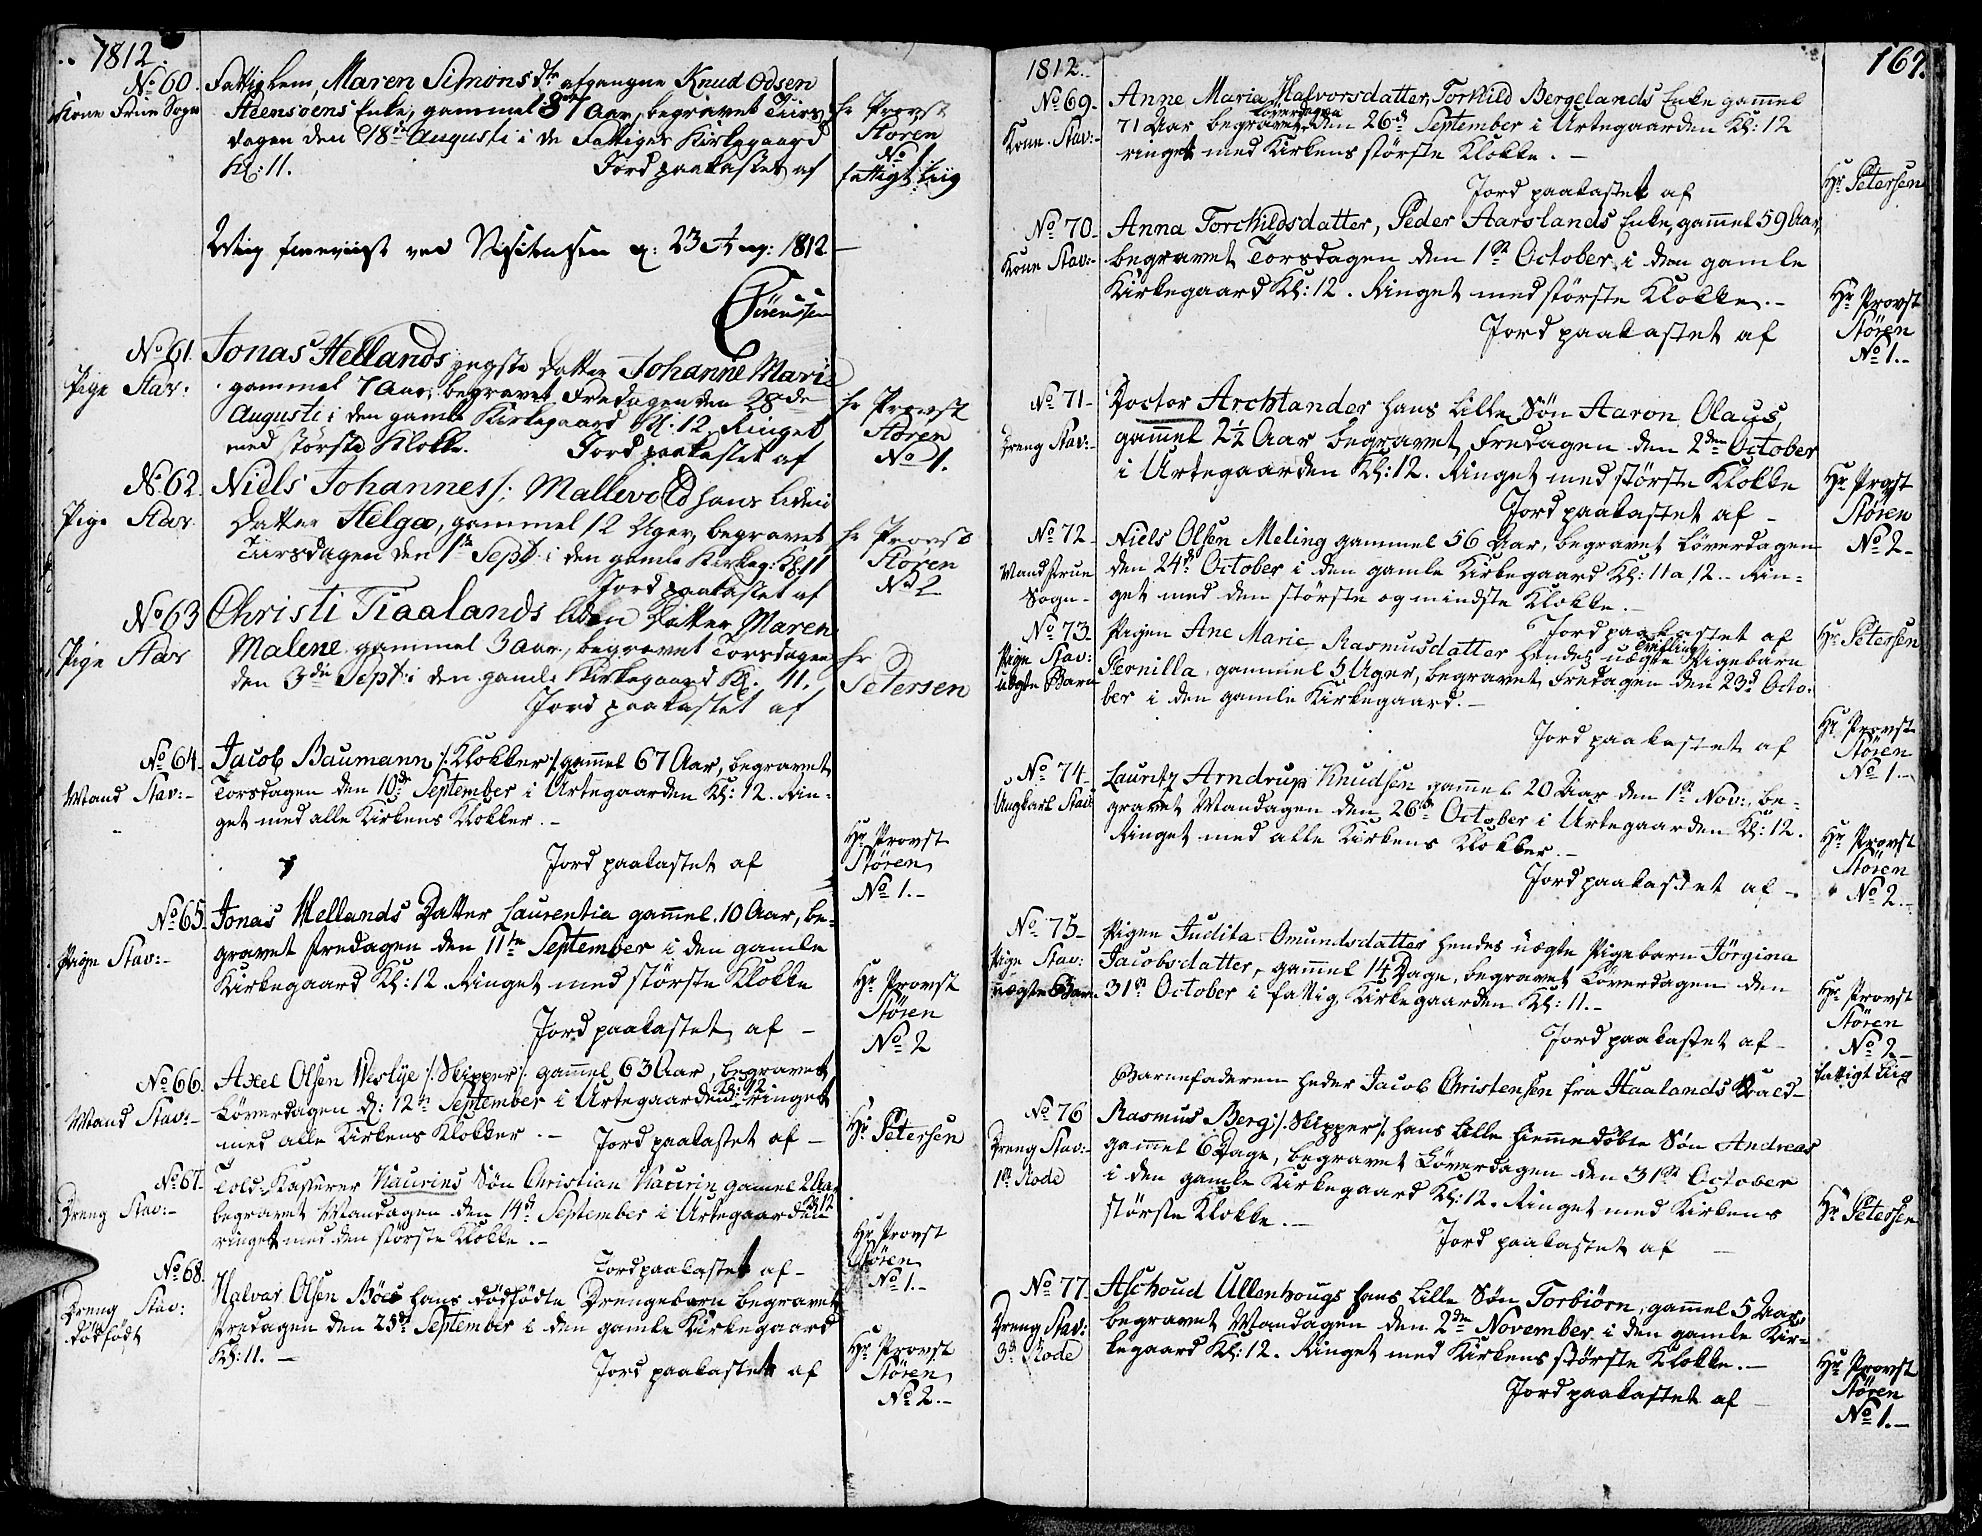 1812.
No 60.
Kone Frue Sogn
Fattiglem, Maren Simonsdtr afgangne Knud Odsen
Steensoens Enke, gammel 87 Aar, begravet Tiirs
dagen den 18de Augusti i de Fattiges Kirkegaard
Kl: 11. Jord paakastet af
Hr Provst
Støren
No 1
fattigt Liig
ved Visitatsen d: 23 Aug: 1812
Sörenssen
No 61.
Pige Stav:
Jonas Hellands yngste Datter Johanne Marie
gammel 7 Aar, begravet Fredagen den 28de
Augusti i den gamle Kirkegaard Kl: 12. Ringet
med største Klokke. Jord paakastet af
Hr Provst
Støren
No 1.
No 62.
Pige Stav.
Niels Johanness: Mallevold hans liden
Datter Helga, gammel 12 Uger, begravet
Tiirsdagen den 1te Sept: i den gamle Kirkeg: Kl: 11
Jord paakastet af
Hr Provst
Støren
No 2
No 63
Pige Stav
Christi Tiaalands liden Datter Maren
Malene gammel 3 Aar, begravet Torsdagen
den 3die Sept: i den gamle Kirkegaard Kl: 11.
Jord paakastet af
Hr
Petersen
No 64.
Mand Stav:-
Jacob Baumann /: Klokker :/ gammel 67 Aar, begravet
Torsdagen den 10de September i Urtegaarden Kl: 12. Rin-
get med alle Kirkens Klokker.-
Jord paakastet af
Hr Provst
Støren
No 1.-
No 65.
Pige Stav:-
Jonas Hellands Datter Laurentia gammel 10 Aar, be-
gravet Fredagen den 11te September i den gamle
Kirkegaard Kl: 12. Ringet med største Klokke
Jord paakastet af -
Hr Provst
Støren
No 2
No 66.
Mand Stav:-
Axel Olsen Westye /: Skipper :/ gammel 63 Aar, begravet
Løverdagen d: 12te September i Urtegaarden Kl: 12 ringet
med alle Kirkens Klokker.- Jord paakastet af -
Hr Petersen
No 67.
Dreng Stav:-
Told-Kasserer Naurins Søn Christian Naurin gamel 2 Aar
begravet Mandagen den 14de September i Urtegaarden Kl 12
ringet med den største Klokke.-
Jord paakastet af -
Hr Provst
Støren
No 1.-
No 68.
Dreng Stav:
dødfødt
Halvar Olsen Böes hans dødfødte Drengebarn begravet
Fredagen den 25de September i den gamle Kirkegaard
Kl: 11. - Jord paakastet af
Hr Provst
Støren
No 2.-
1812.
167.
No 69.
Kone Stav:-
Anne Maria Halvorsdatter, Torkild Bergelands Enke gammel
71 Aar begravet Løverdagen den 26de September i Urtegaarden Kl: 12
ringet med Kirkens største Klokke.-
Jord paakastet af
Hr Petersen
No 70.
Kone Stav:-
Anna Torchildsdatter, Peder Aarslands Enke, gammel 59 Aar,
begravet Torsdagen den 1ste October i den gamle
Kirkegaard Kl: 12. Ringet med største Klokke.-
Jord paakastet af
Hr Provst
Støren
No 1.-
No 71-
Dreng Stav:-
Doctor Archtander hans lille Søn Aaron Olaus,
gammel 2½ Aar begravet Fredagen den 2den October
i Urtegaarden Kl: 12. Ringet med største Klokke
Jord paakastet af -
Hr Provst
Støren
No 2-
No 72
Mand Frue
Sogn-
Niels Olsen Meling gammel 56 Aar, begravet Løverdagen
den 24de October i den gamle Kirkegaard Kl: 11 a 12.- Rin-
get med den største og mindste Klokke.-
Jord paakastet af
Hr Petersen
No 73
Pige Stav:
uægte Barn
Pigen Ane Marie Rasmusdatter hendes uægte Pigebarn
Pernilla, gammel 5 Uger, begravet Fredagen den 23de Octo-
ber i den gamle Kirkegaard.-
Jord paakastet af
Hr Provst
Støren
No 1-
No 74
Ungkarl Stav
Lauritz Arndrup Knudsen gammel 20 Aar den 1ste Nov:, be-
gravet Mandagen den 26de October i Urtegaarden Kl: 12.
Ringet med alle Kirkens Klokker.-
Jord paakastet af -
Hr Provst
Støren
No 2.-
No 75-
Pige Stav:
uægte Barn-
Pigen Judita Omundsdatter hendes uægte Pigebarn Jörgina
Jacobsdatter, gammel 14 Dage, begravet Løverdagen den
31te October i fattig Kirkegaarden Kl: 11.-
Jord paakastet af -
Hr Provst
Støren
No 2-
fattigt Liig
Barnefaderen heder Jacob Christensen fra Haalands Qvald-
No 76
Dreng Stav:
1ste Rode
Rasmus Berg /: Skipper :/ hans lille hiemmedøbte Søn Andreas
gammel 6 Dage, begravet Løverdagen den 31te October
i den gamle Kirkegaard Kl: 12. Ringet med Kirkens
største Klokke.-
Jord paakastet af -
Hr Petersen
No 77.
Dreng Stav:
3de Rode
Aschoud Ullenhougs hans lille Søn Torbiörn, gammel 5 Aar
begravet Mandagen den 2den November i den gamle Kir-
kegaard Kl: 12. Ringet med Kirkens største Klokke.-
Jord paakastet af
Hr Provst
Støren
No 1.-